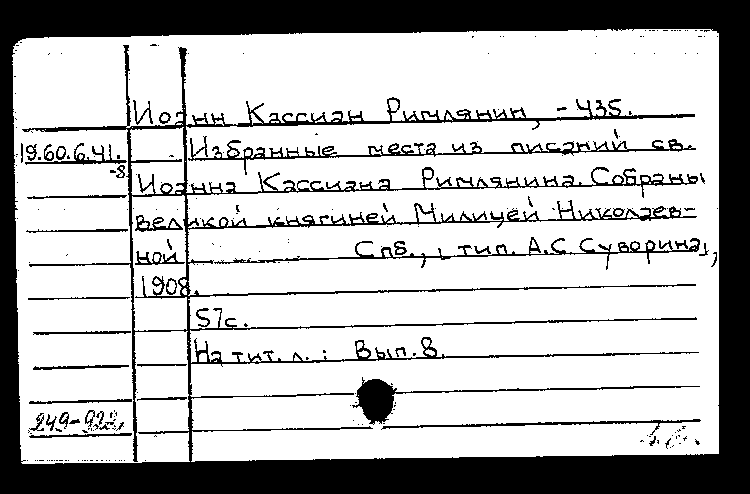 Иоанн Кассиан Римлянин, -435.
19.60.6.41. Избранные места из писаний св.
-8 Иоанна Кассиана Римлянина. Собраны
великой княгиней Милицей Николаев-
ной Спб., тип. А.С. Суворина,
1908.
57с.
На тит. л.: Вып. 8.
249-922